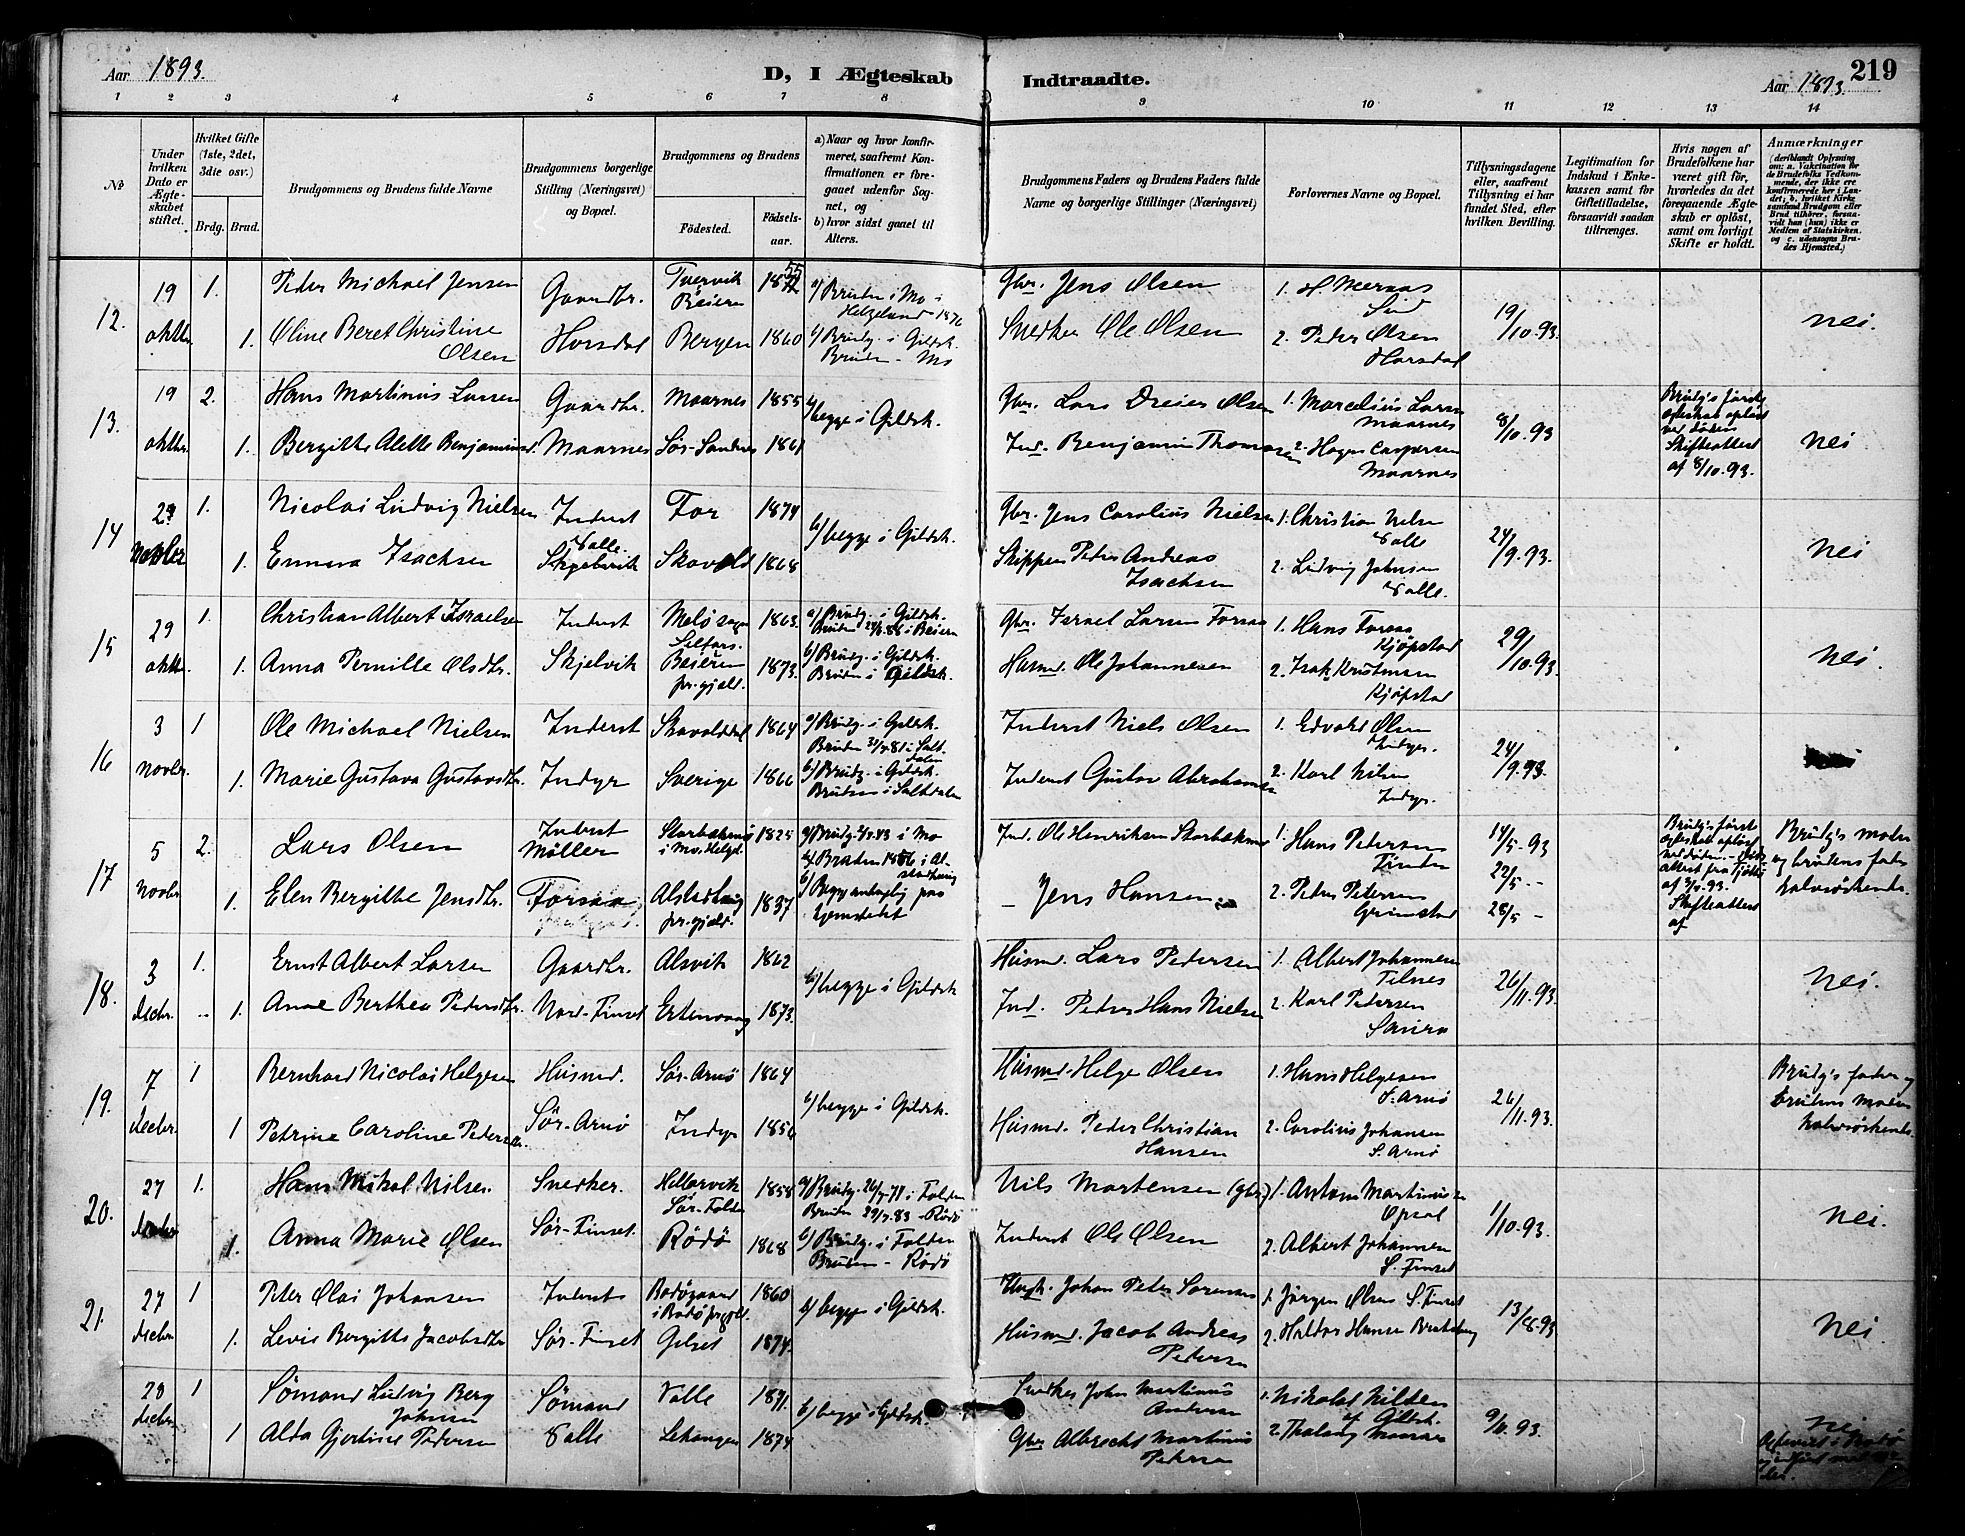 Aar 1893.
D, I Ægteskab Indtraadte.
219
Aar 1893.
1 2 3 4 5 6 7 8 9 10 11 12 13 14
No
Under hvilken Dato er Ægteskabet stiftet.
Hvilket Gifte (1ste, 2det, 3die osv.)
Brdg. Brud.
Brudgommens og Brudens fulde Navne
Brudgommens borgerlige Stilling (Næringsvei) og Bopæl.
Brudgommens og Brudens
Fødested.
Fødselsaar.
a) Naar og hvor konfirmeret, saafremt Konfirmationen er foregaaet udenfor Sognet, og
b) hvor sidst gaaet til Alters.
Brudgommens Faders og Brudens Faders fulde Navne og borgerlige Stillinger (Næringsvei)
Forlovernes Navne og Bopæl.
Tillysningsdagene eller, saafremt Tillysning ei har fundet Sted, efter hvilken Bevilling.
Legitimation for Indskud i Enkekassen samt for Giftetilladelse, forsaavidt saadan tiltrænges.
Hvis nogen af Brudefolkene har været gift før, hvorledes da det foregaaende Ægteskab er opløst, samt om lovligt Skifte er holdt.
Anmærkninger
(deriblandt Oplysning om: a. Vakcination for de Brudefolks Vedkommende, der ikke ere konfirmerede her i Landet; b. hvilket Kirkesamfund Brudgom eller Brud tilhører, forsaavidt han (hun) ikke er Medlem af Statskirken. og c. udensogns Brudes Hjemsted.)
12. 19 oktbr. 1. Peder Michael Jensen Gaardbr. Tvervik Beiern 1855 a) Bruden i Mo i Helgeland 1876 Gbr. Jens Olsen 1. H. Mernas 19/10.93. nei.
1. Oline Beret Christine Olsen Horsdal Bergen 1860 b) Brudg. i Gildsk. Bruden - Mo Snedker Ole Olsen 2. Peder Olsen Horsdal
13. 19 oktbr. 2. Hans Martinus Larsen Gaardbr. Maarnes 1855 b) begge i Gildsk. Gbr. Lars Dreier Olsen 1. Marcelius Larsen Maarnes 8/10.93 Brudg's første egteskab opløst ved døden Skifteattest af 8/10.93. nei
1. Bergitte Alette Benjaminsd. Maarnes Sør-Sandnes 1861 Ind. Benjamin Thomassen 2. Hagen Caspersen Maarnes
14 29 1. Nicolai Ludvig Nielsen Inderst Valle For 1874 b) begge i Gildsk. Gbr. Jens Carolius Nielsen 1. Christian Nilsen Valle 24/9.93. nei
1. Emma Isachsen Skjelvik Skavold 1868 Skipper Peder Andreas Isachsen 2. Ludvig Johnsen Valle.
15 29 oktbr. 1. Christian Albert Israelsen Inderst Melø sogn 1863. a) Brudg. i Gildsk. Gbr. Israel Larsen Forsaa 1. Hans Forsaa Kjøpstad 29/10.93. nei.
1. Anna Pernille Olsdtr. Skjelvik Beieren pr.gjeld. 1873. b) Brudg. i Gildsk. Bruden i Gildsk. Husmd. Ole Johannesen 2. Isak Kristensen Kjøpstad
16 3 novbr. 1 Ole Michael Nielsen Inderst Skavolddal 1864 a) Brudg. i Gildsk. Inderst Niels Olsen 1. Edvard Olsen Indyr. 24/9.93.
1. Marie Gustava Gustavsdtr. Indyr Sverige 1866 b) Brudg. i Gildsk. Bruden i Saltdalen Inderst Gustav Abrahamsen 2. Karl Nilsen Indyr.
17 5 novbr. 2. Lars Olsen Inderst Møller Storbækmo i Mo. Helgel. 1825 Ind. Ole Henriksen Storbækmo 1. Hans Pedersen 14/5-93 22/5 -- 28/5 - Brudg's moder og brudens fader halvsøskende.
1. Elen Bergitte Jensdtr. Forsaa Alstahaug pr.gjeld. 1837 - Jens Hansen 2. Peder Petersen Grimstad
18. 3 decbr. 1. Ernst Albert Larsen Gaardbr. Alsvik 1862 b) begge i Gildsk Husmd. Lars Pedersen 1. Albert Johannesen 26/11.93. nei.
1. Anne Berthea Pedersdtr. Nord-Finset Ertenvaag 1873. Ind. Peder Hans Nielsen 2. Karl Petersen
19. 7 decbr. 1 Bernhard Nicolai Helgesen Husmd. Sør-Arnø 1864 b) begge i Gildsk. Husmd. Helge Olsen 1. Hans Helgesen S. Arnø 26/11.93. Brudg's fader og brudens moder halvsøskende.
1 Petrine Caroline Pedersdtr. Sør-Arnø Indyr 1856 Husmd. Peder Christian Hansen 2. Carolius Johansen S. Arnø
20. 27 decbr 1. Hans Mikal Nilsen Snedker. Hellarvik Sør-Folden 1858 Nils Mortensen (gbr.) 1. Anton Martinussen Opsal 1/10.93. nei.
1. Anna Marie Olsen Sør-Finset. Rødø 1868 b) Brudg. i Folden Bruden - Rødø Inderst Ole Olsen 2. Albert Johannesen S. Finset
21. 27 decbr 1 Peter Olai Johansen Inderst Bodøgaard i Bodø prgjeld. 1860 b) begge i Gildsk. Johan Peter Sørensen 1. Jørgen Olsen S. Finset 13/8.93 nei.
1. Levis Bergitte Jacobsdtr Sør-Finset Gilset 1874. Husmd. Jacob Andreas Pedersen 2. Haldor Hansen
28 decbr 1 Sømand Ludvig Berg Johnsen Sømand Valle 1871. b) begge i Gildsk. Snedker John Martinus Andersen 9/11.93. nei
1 Alda Gjertine Pedersen Valle 1874 Gbr Albrecht Martinus Petersen